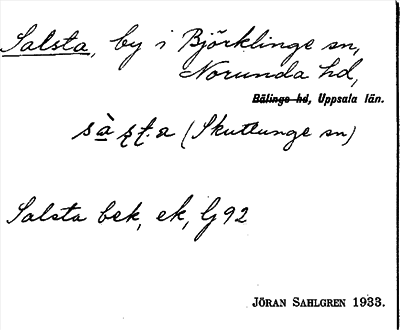 Salsta, by i Björklinge sn,
Norunda hd,
Bälinge hd, Uppsala län.
(Skuttunge sn)
Salsta bek, ek, G 92
JÖRAN SAHLGREN 1933.